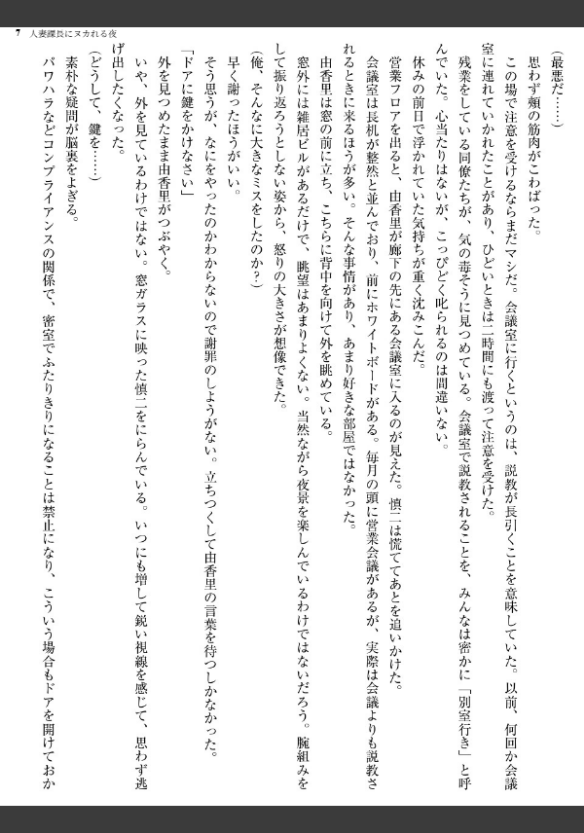 7 人妻課長にヌカれる夜
(最悪だ……)
思わず頬の筋肉がこわばった。
この場で注意を受けるならまだマシだ。会議室に行くというのは、説教が長引くことを意味していた。以前、何回か会議
室に連れていかれたことがあり、ひどいときは二時間にも渡って注意を受けた。
残業をしている同僚たちが、気の毒そうに見つめている。会議室で説教されることを、みんなは密かに「別室行き」と呼
んでいた。心当たりはないが、こっぴどく叱られるのは間違いない。
休みの前日で浮かれていた気持ちが重く沈みこんだ。
営業フロアを出ると、由香里が廊下の先にある会議室に入るのが見えた。慎二は慌ててあとを追いかけた。
会議室は長机が整然と並んでおり、前にホワイトボードがある。毎月の頭に営業会議があるが、実際は会議よりも説教さ
れるときに来るほうが多い。そんな事情があり、あまり好きな部屋ではなかった。
由香里は窓の前に立ち、こちらに背中を向けて外を眺めている。
窓外には雑居ビルがあるだけで、眺望はあまりよくない。当然ながら夜景を楽しんでいるわけではないだろう。腕組みを
して振り返ろうとしない姿から、怒りの大きさが想像できた。
(俺、そんなに大きなミスをしたのか?)
早く謝ったほうがいい。
そう思うが、なにをやったのかわからないので謝罪のしようがない。立ちつくして由香里の言葉を待つしかなかった。
「ドアに鍵をかけなさい」
外を見つめたまま由香里がつぶやく。
いや、外を見ているわけではない。窓ガラスに映った慎二をにらんでいる。いつにも増して鋭い視線を感じて、思わず逃
げ出したくなった。
(どうして、鍵を……)
素朴な疑問が脳裏をよぎる。
パワハラなどコンプライアンスの関係で、密室でふたりきりになることは禁止になり、こういう場合もドアを開けておか